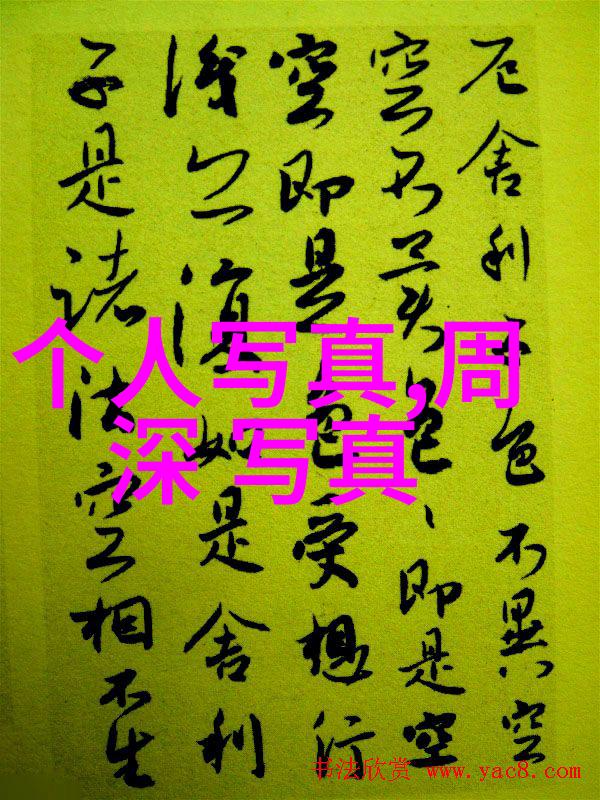 厄舍利子色不異空
空不異色、即是空
空即是色受想行
識亦復如是舍利
子是諸法空相不生
个人写真,周
深 写真
书法欣赏 www.yac8.com